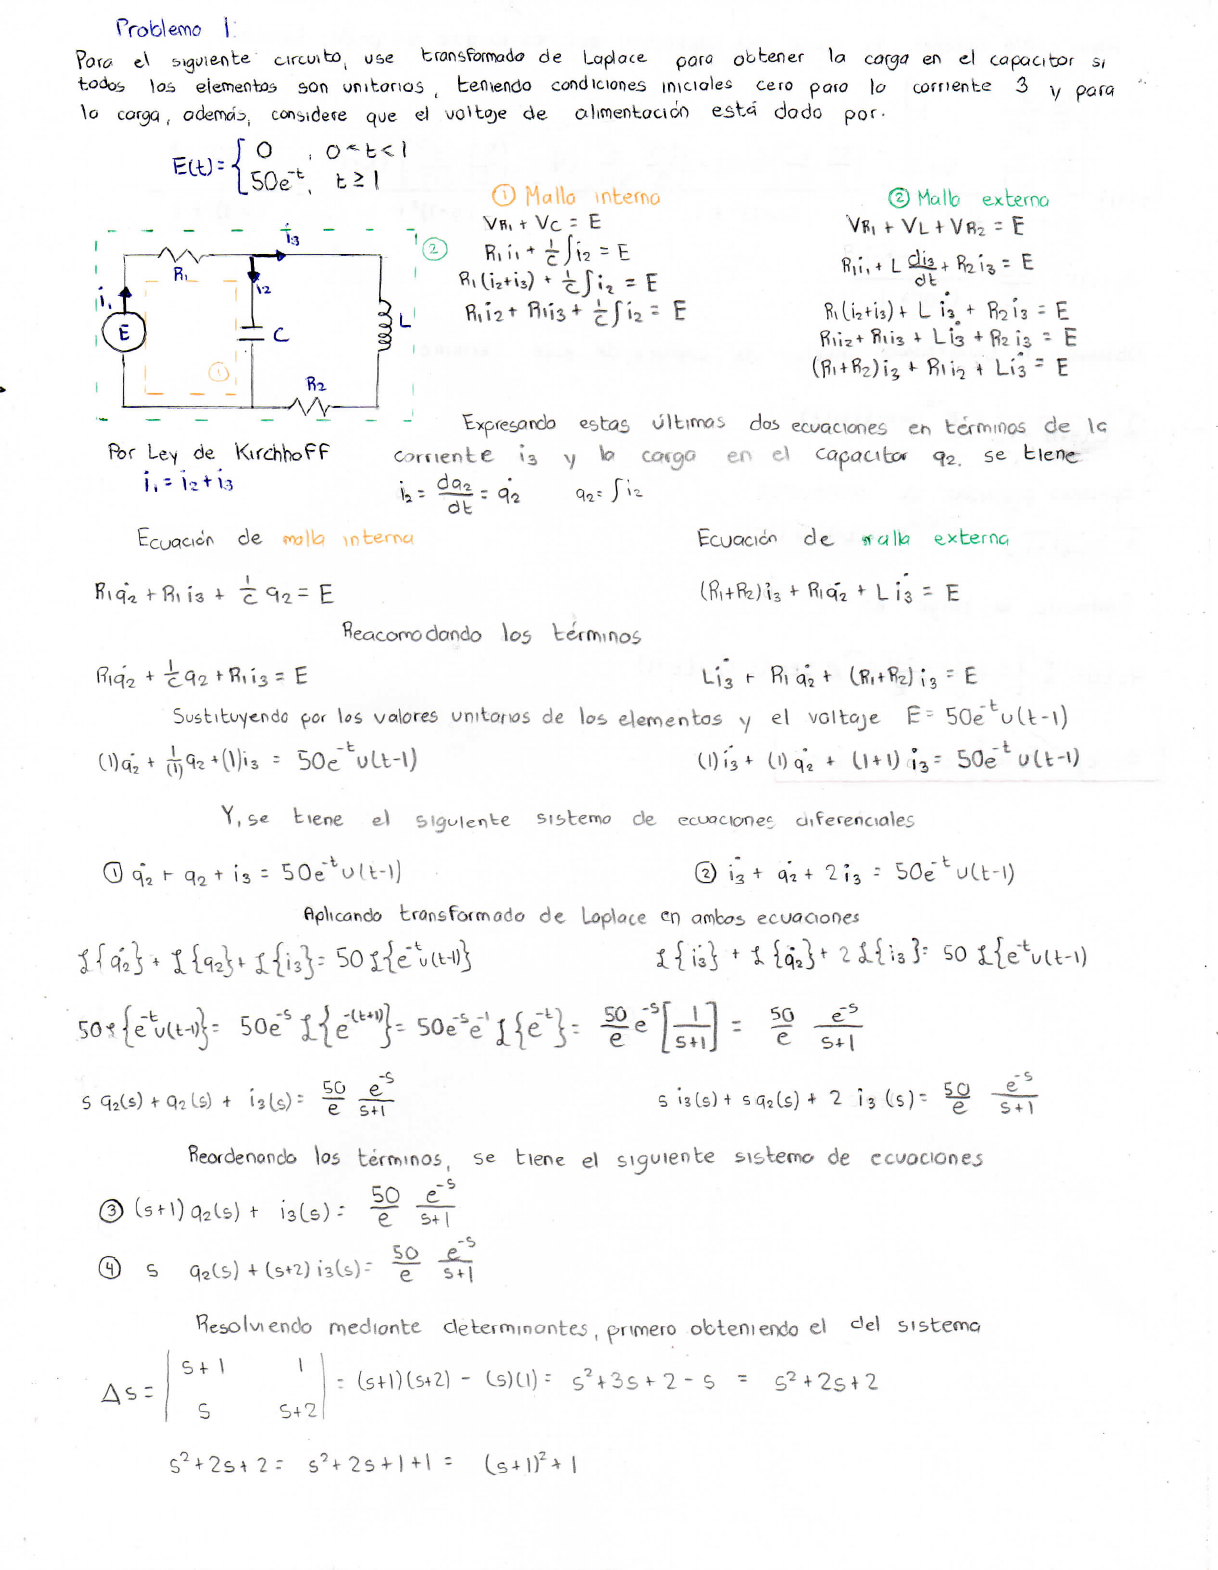 Problema 1:
Para el siguiente circuito, use transformada de Laplace para obtener la carga en el capacitor si
todos los elementos son unitarios, teniendo condiciones iniciales cero para la corriente 3 y para
la carga, además, considere que el voltaje de alimentación está dado por.
E(t) = { 0 , 0 < t < 1
50e^-t, t ≥ 1
① Malla interna
VR1 + VC = E
R1 i1 + 1/C ∫i2 = E
R1(i2+i3) + 1/C ∫i2 = E
R1i2 + R1i3 + 1/C ∫i2 = E
② Malla externa
VR1 + VL + VR2 = E
R1i1 + L di3/dt + R2i3 = E
R1(i2+i3) + L i̇3 + R2i3 = E
R1i2 + R1i3 + Li̇3 + R2i3 = E
(R1+R2)i3 + R1i2 + Li̇3 = E
i3
②
R1
i1
i2
E
C
L
①
R2
Por Ley de Kirchhoff
i1 = i2 + i3
Expresando estas últimas dos ecuaciones en términos de la
corriente i3 y la carga en el capacitor q2, se tiene
i2 = dq2/dt = q̇2 q2 = ∫i2
Ecuación de malla interna Ecuación de malla externa
R1q̇2 + R1i3 + 1/C q2 = E (R1+R2)i3 + R1q̇2 + Li̇3 = E
Reacomodando los términos
R1q̇2 + 1/C q2 + R1i3 = E Li̇3 + R1q̇2 + (R1+R2)i3 = E
Sustituyendo por los valores unitarios de los elementos y el voltaje E = 50e^-t u(t-1)
(1)q̇2 + 1/(1) q2 + (1)i3 = 50e^-t u(t-1) (1)i̇3 + (1)q̇2 + (1+1)i3 = 50e^-t u(t-1)
Y, se tiene el siguiente sistema de ecuaciones diferenciales
① q̇2 + q2 + i3 = 50e^-t u(t-1) ② i̇3 + q̇2 + 2i3 = 50e^-t u(t-1)
Aplicando transformada de Laplace en ambos ecuaciones
ℒ{q̇2} + ℒ{q2} + ℒ{i3} = 50 ℒ{e^-t u(t-1)} ℒ{i̇3} + ℒ{q̇2} + 2ℒ{i3} = 50 ℒ{e^-t u(t-1)
50ℒ{e^-t u(t-1)} = 50e^-s ℒ{e^-(t+1)} = 50e^-s e^-1 ℒ{e^-t} = 50/e e^-s [1/(s+1)] = 50/e e^-s/(s+1)
s q2(s) + q2(s) + i3(s) = 50/e e^-s/(s+1) s i3(s) + s q2(s) + 2 i3(s) = 50/e e^-s/(s+1)
Reordenando los términos, se tiene el siguiente sistema de ecuaciones
③ (s+1) q2(s) + i3(s) = 50/e e^-s/(s+1)
④ s q2(s) + (s+2) i3(s) = 50/e e^-s/(s+1)
Resolviendo mediante determinantes, primero obteniendo el del sistema
Δs = | s+1 1 | = (s+1)(s+2) - (s)(1) = s² + 3s + 2 - s = s² + 2s + 2
| s s+2 |
s² + 2s + 2 = s² + 2s + 1 + 1 = (s+1)² + 1